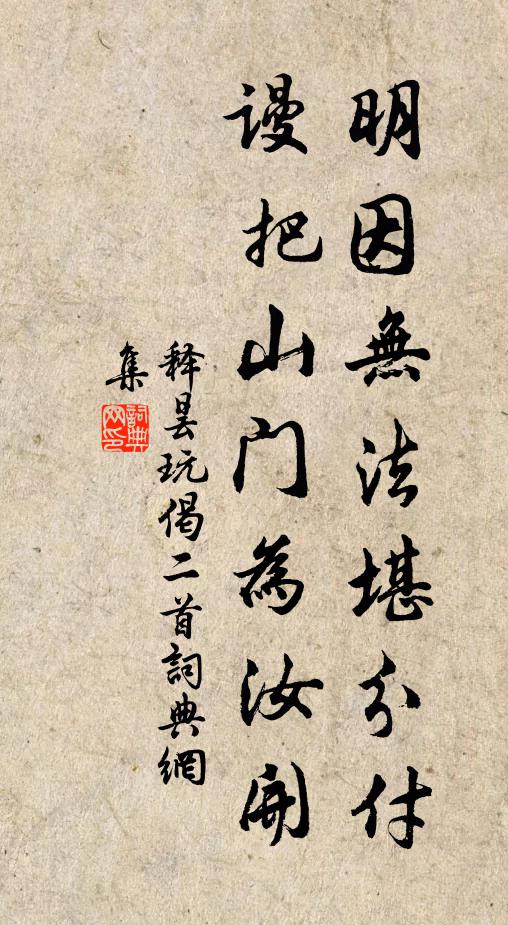 明因無法堪分付
謾把山門為汝開
释昙玩偈二首詞典網
集
詞典網印